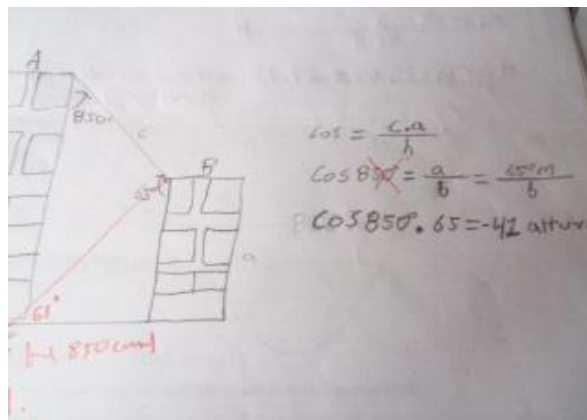 A
850°
c
B
a
65°
cos = c.a / h
Cos 850° = a / b = 65°m / b
Cos 850°. 65 = -41 altur